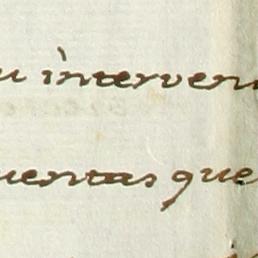 u interven
uentas que